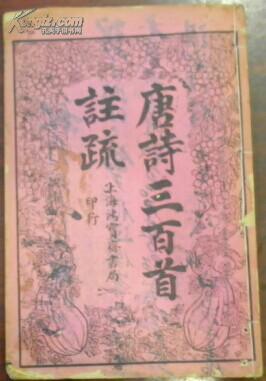 唐詩三百首
註疏
上海鴻寶齋書局
印行
Kongfz.com
孔夫子旧书网